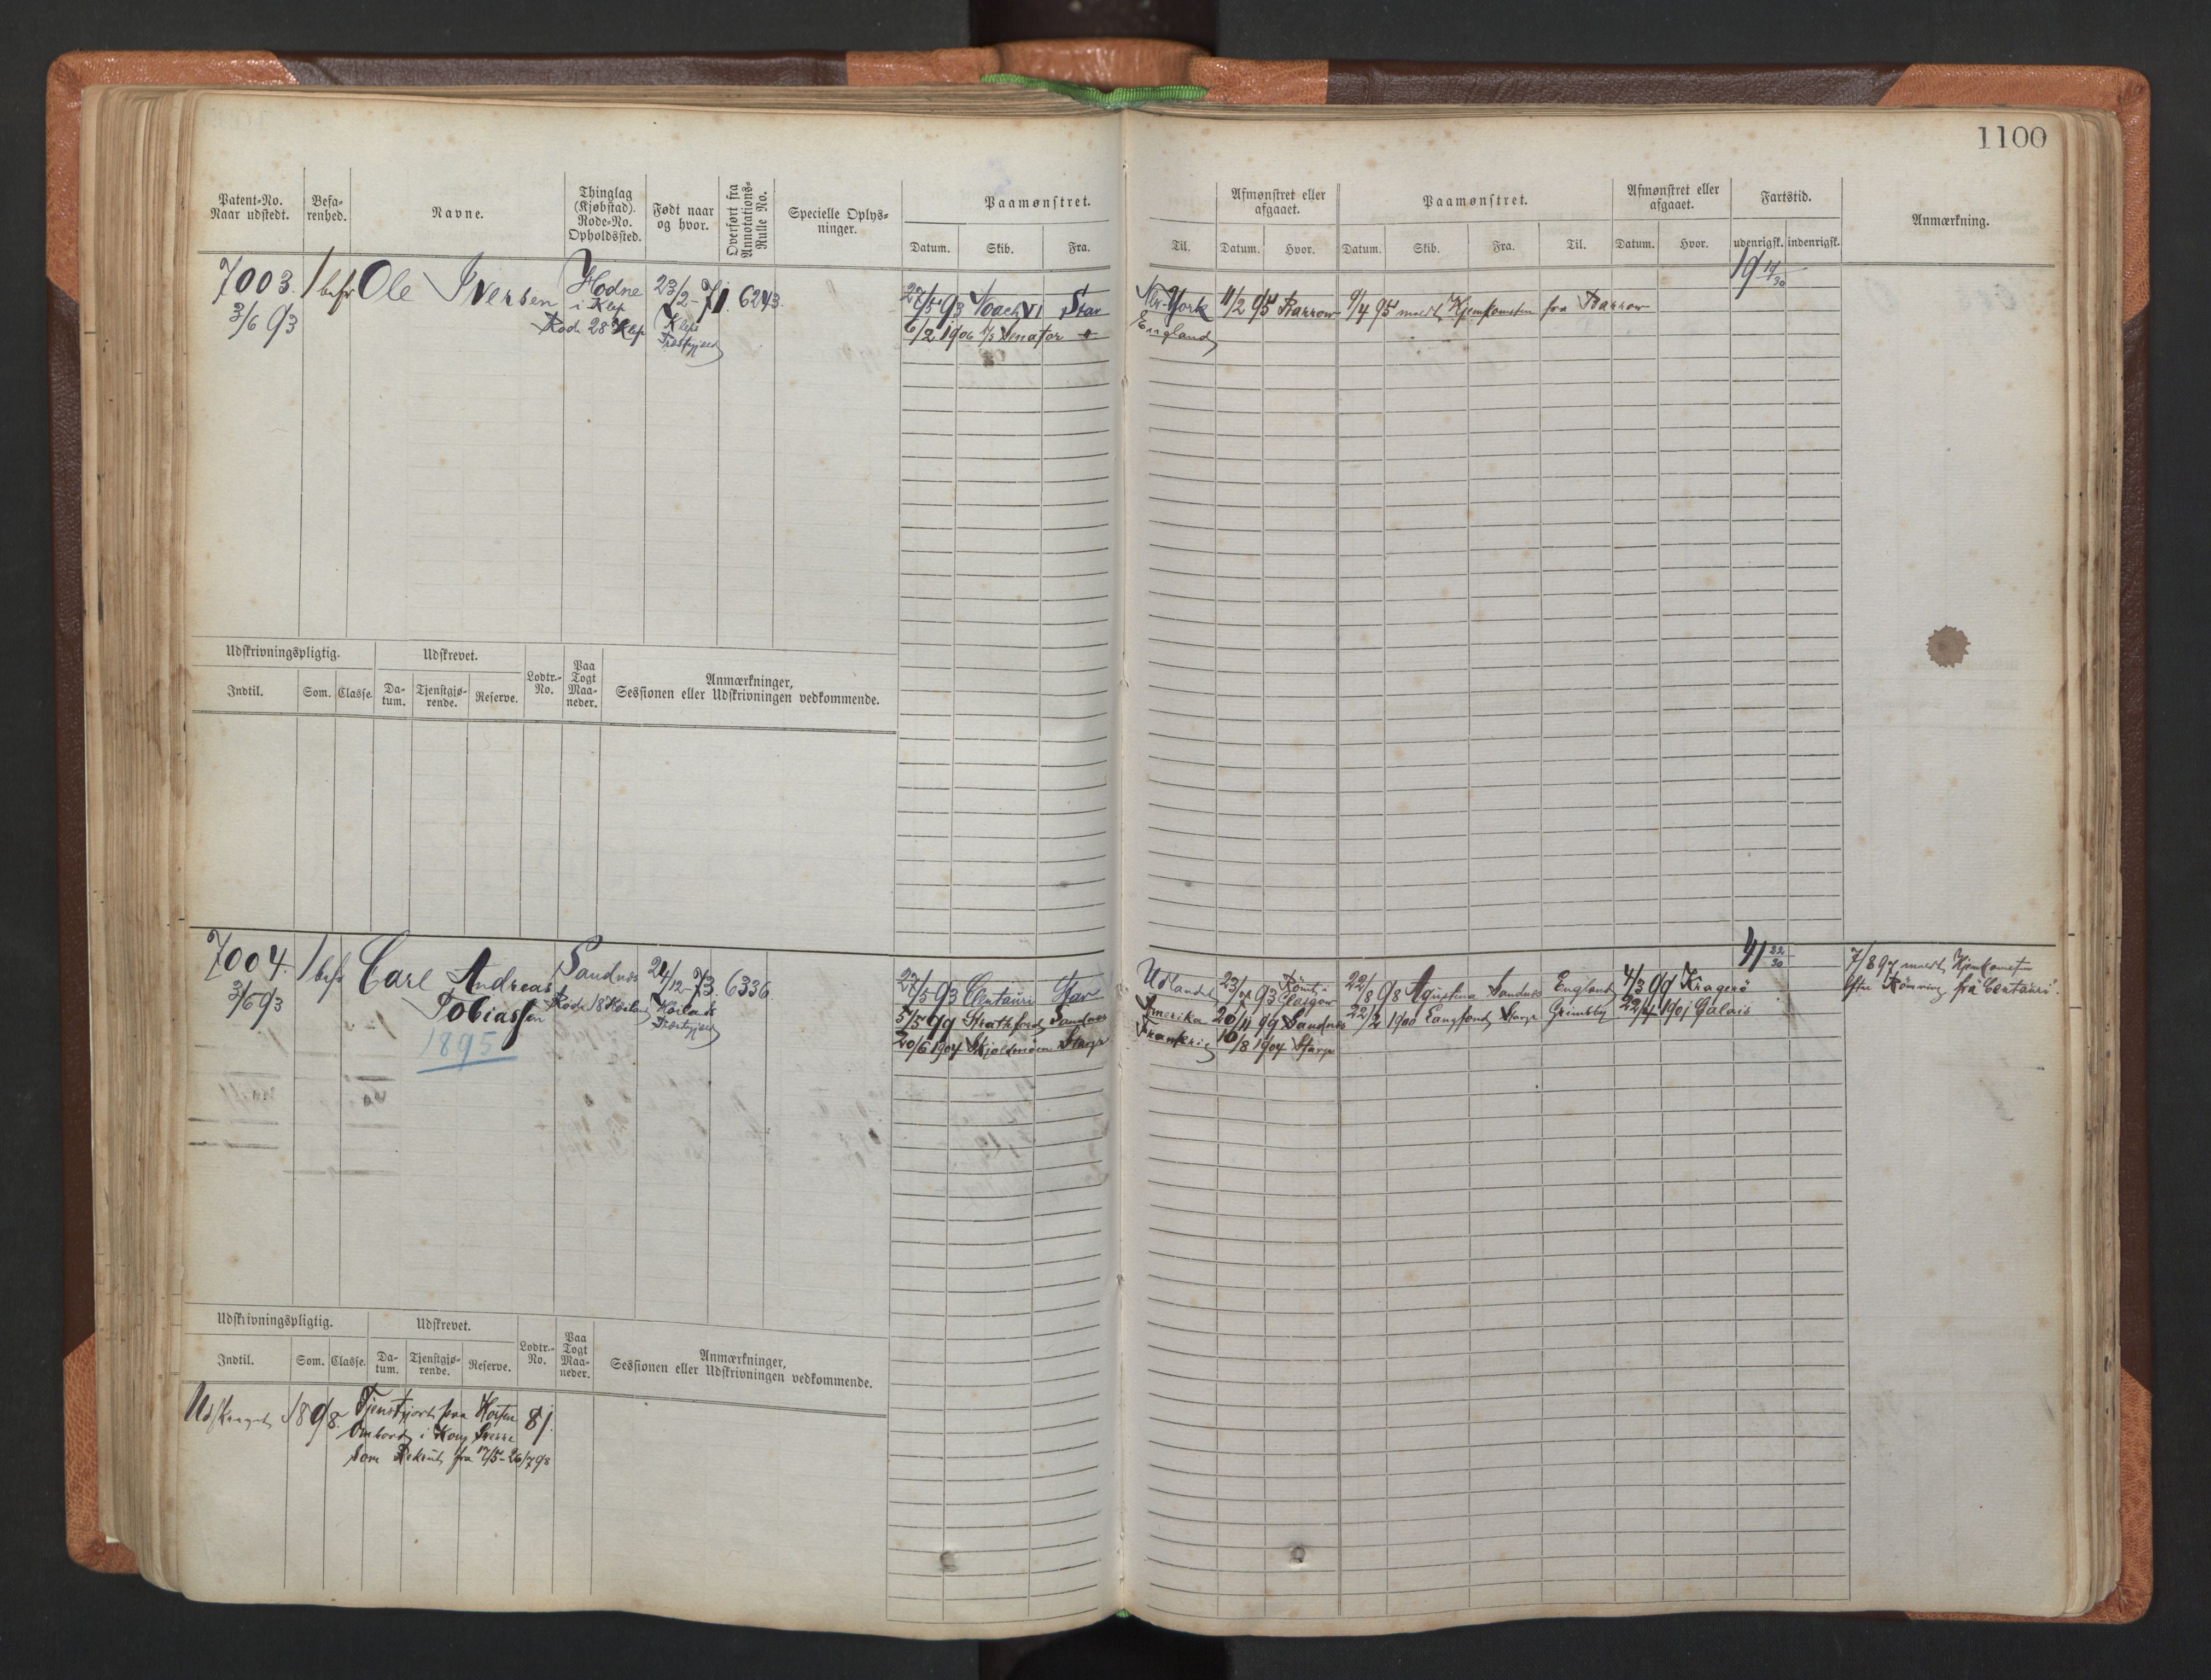 1100
Patent-No. Naar udstedt.
Befarenhed.
Navne.
Thinglag (Kjøbstad). Rode-No. Opholdssted.
Født naar og hvor.
Overført fra Annotations-Rulle No.
Specielle Oplysninger.
Paamønstret.
Datum. Skib. Fra.
Til.
Afmønstret eller afgaaet.
Datum. Hvor.
Paamønstret.
Datum. Skib. Fra. Til.
Afmønstret eller afgaaet.
Datum. Hvor.
Fartstid.
udenrigsk. indenrigsk.
Anmærkning.
7003. 1 befr Ole Iversen Hodne 23/2-71. 6243.
3/6 93
i Klep
Rode 28 Klep
Klep
Præstgjæld
27/5 93 Noach VI Stav New-York 11/2 95 Barrow 9/4 95 Kjemkometen fra Barrow
19 11/30
6/2 1906 Senator England
Udskrivningspligtig.
Udskrevet.
Lodtr.-No.
Paa Togt Maaneder.
Anmærkninger,
Sessionen eller Udskrivningen vedkommende.
Indtil. Som. Classe. Datum. Tjenstgjørende. Reserve.
7004. 1 befr Carl Andreas Sandnes 24/12-73. 6336
3/6 93
Tobiassen Rode 18
Præstgjæld
1895
27/5 93 Centauri Stav Udlandet 23/ 93 22/8 98 Sandnes England 4/3 99 Kragerö
41 22/30
5/5 99 Strathford Sandnes Amerika 20/11 99 Sandnes 22/2 1900 Grimsby 22/ 1901 Calais
20/6 1904 Skjoldmöen Stavgr Frankrig 10/8 1904 Stavgr
7/8 97 Kjemkometen
efter Römning fra Centauri.
Udskrivningspligtig.
Udskrevet.
Lodtr.-No.
Paa Togt Maaneder.
Anmærkninger,
Sessionen eller Udskrivningen vedkommende.
Indtil. Som. Classe. Datum. Tjenstgjørende. Reserve.
1898. Tjenstgjort paa Horten 81.
Ombord i Kong Sverre
som Rekrut fra 17/5-26/7 98